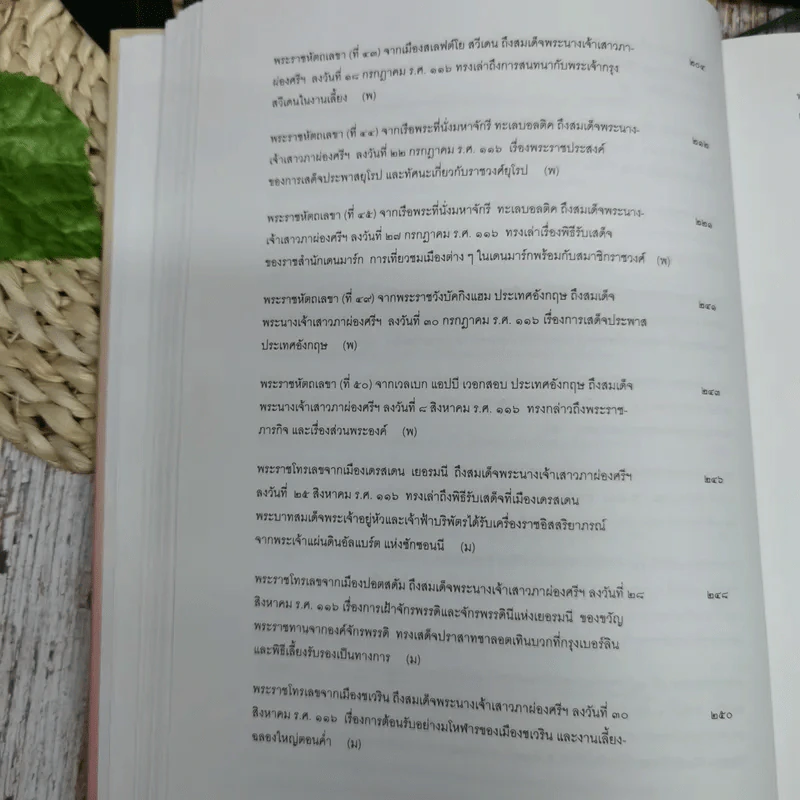 พระราชหัตถเลขา (ที่ ๔๓) จากเมืองสเลฟต์โย สวีเดน ถึงสมเด็จพระนางเจ้าเสาวภา- ๒๐๔
ผ่องศรีฯ ลงวันที่ ๑๘ กรกฎาคม ร.ศ. ๑๑๖ ทรงเล่าถึงการสนทนากับพระเจ้ากรุง
สวีเดนในงานเลี้ยง (พ)
พระราชหัตถเลขา (ที่ ๔๔) จากเรือพระที่นั่งมหาจักรี ทะเลบอลติค ถึงสมเด็จพระนาง- ๒๑๒
เจ้าเสาวภาผ่องศรีฯ ลงวันที่ ๒๒ กรกฎาคม ร.ศ. ๑๑๖ เรื่องพระราชประสงค์
ของการเสด็จประพาสยุโรป และทัศนะเกี่ยวกับราชวงศ์ยุโรป (พ)
พระราชหัตถเลขา (ที่ ๔๕) จากเรือพระที่นั่งมหาจักรี ทะเลบอลติค ถึงสมเด็จพระนาง- ๒๒๑
เจ้าเสาวภาผ่องศรีฯ ลงวันที่ ๒๗ กรกฎาคม ร.ศ. ๑๑๖ ทรงเล่าเรื่องพิธีรับเสด็จ
ของราชสำนักเดนมาร์ก การเที่ยวชมเมืองต่าง ๆ ในเดนมาร์กพร้อมกับสมาชิกราชวงศ์ (พ)
พระราชหัตถเลขา (ที่ ๔๙) จากพระราชวังบัคกิงแฮม ประเทศอังกฤษ ถึงสมเด็จ ๒๔๑
พระนางเจ้าเสาวภาผ่องศรีฯ ลงวันที่ ๓๐ กรกฎาคม ร.ศ. ๑๑๖ เรื่องการเสด็จประพาส
ประเทศอังกฤษ (พ)
พระราชหัตถเลขา (ที่ ๕๐) จากเวลเบก แอปบี เวอกสอบ ประเทศอังกฤษ ถึงสมเด็จ ๒๔๓
พระนางเจ้าเสาวภาผ่องศรีฯ ลงวันที่ ๘ สิงหาคม ร.ศ. ๑๑๖ ทรงกล่าวถึงพระราช-
ภารกิจ และเรื่องส่วนพระองค์ (พ)
พระราชโทรเลขจากเมืองเดรสเดน เยอรมนี ถึงสมเด็จพระนางเจ้าเสาวภาผ่องศรีฯ ๒๔๖
ลงวันที่ ๒๕ สิงหาคม ร.ศ. ๑๑๖ ทรงเล่าถึงพิธีรับเสด็จที่เมืองเดรสเดน
พระบาทสมเด็จพระเจ้าอยู่หัวและเจ้าฟ้าบริพัตรได้รับเครื่องราชอิสสริยาภรณ์
จากพระเจ้าแผ่นดินอัลแบร์ต แห่งซักซอนนี (ม)
พระราชโทรเลขจากเมืองปอตสดัม ถึงสมเด็จพระนางเจ้าเสาวภาผ่องศรีฯ ลงวันที่ ๒๘ ๒๔๘
สิงหาคม ร.ศ. ๑๑๖ เรื่องการเฝ้าจักรพรรดิและจักรพรรดินีแห่งเยอรมนี ของขวัญ
พระราชทานจากองค์จักรพรรดิ ทรงเสด็จปราสาทชาลอตเทินบวกที่กรุงเบอร์ลิน
และพิธีเลี้ยงรับรองเป็นทางการ (ม)
พระราชโทรเลขจากเมืองชเวริน ถึงสมเด็จพระนางเจ้าเสาวภาผ่องศรีฯ ลงวันที่ ๓๐ ๒๕๐
สิงหาคม ร.ศ. ๑๑๖ เรื่องการต้อนรับอย่างมโหฬารของเมืองชเวริน และงานเลี้ยง-
ฉลองใหญ่ตอนค่ำ (ม)